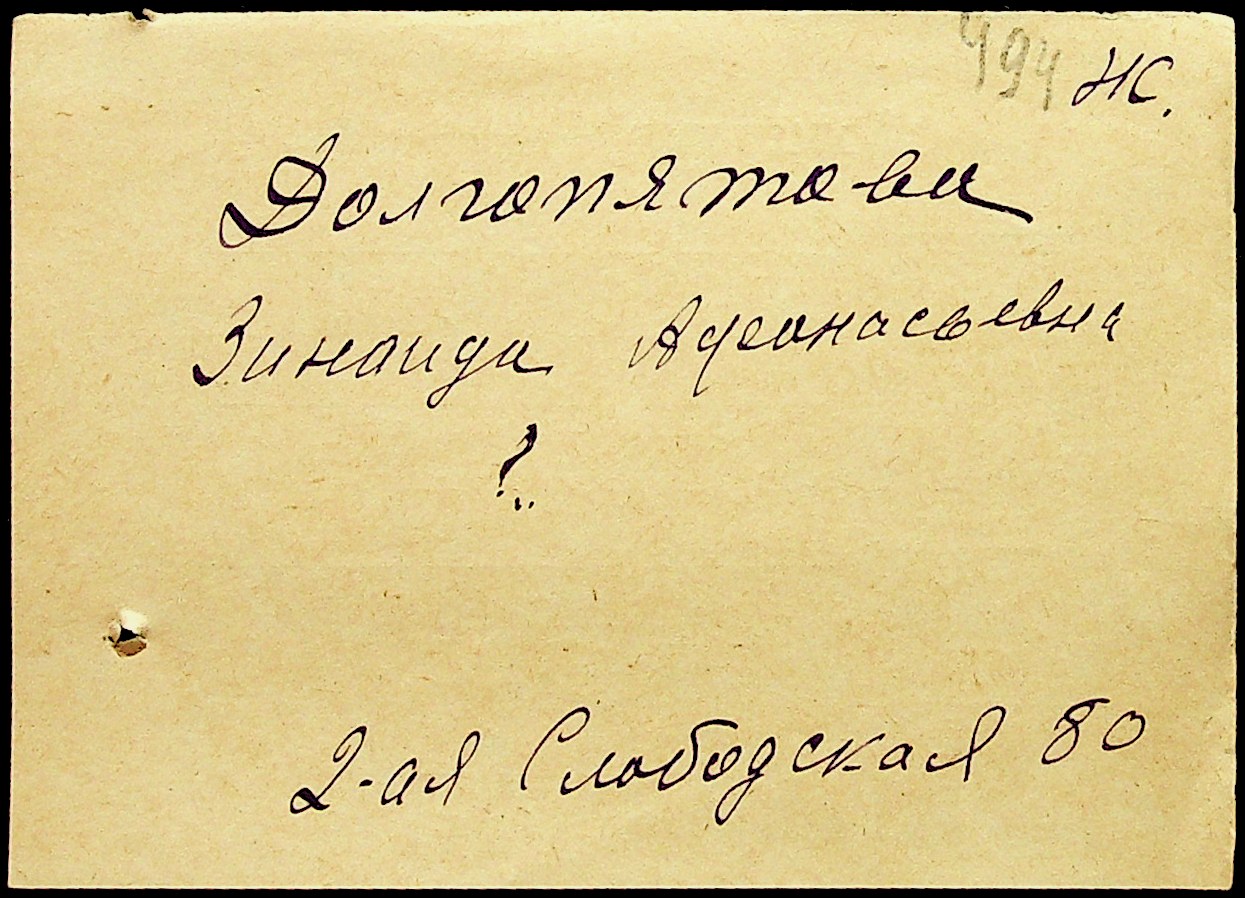 494 Ж.
Долгопятова
Зинаида Афонасьевна
?..
2-ая Слободская 80